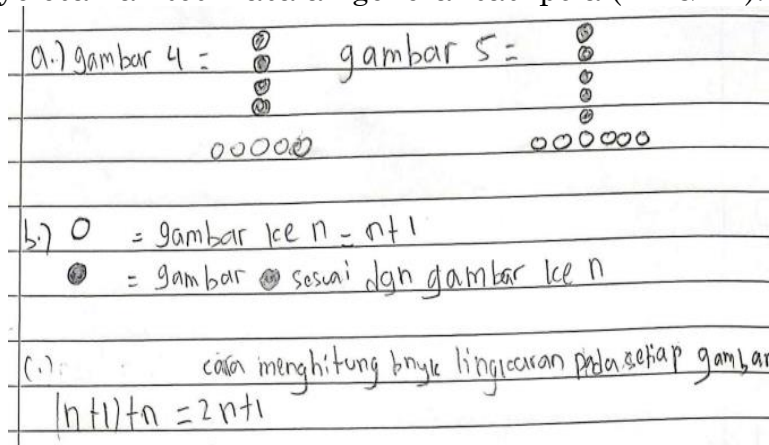 a.) gambar 4 = gambar 5 =
b.) O = gambar ke n = n+1
= gambar sesuai dgn gambar ke n
c.) cara menghitung bnyk lingkaran pada setiap gambar
(n+1)+n = 2n+1